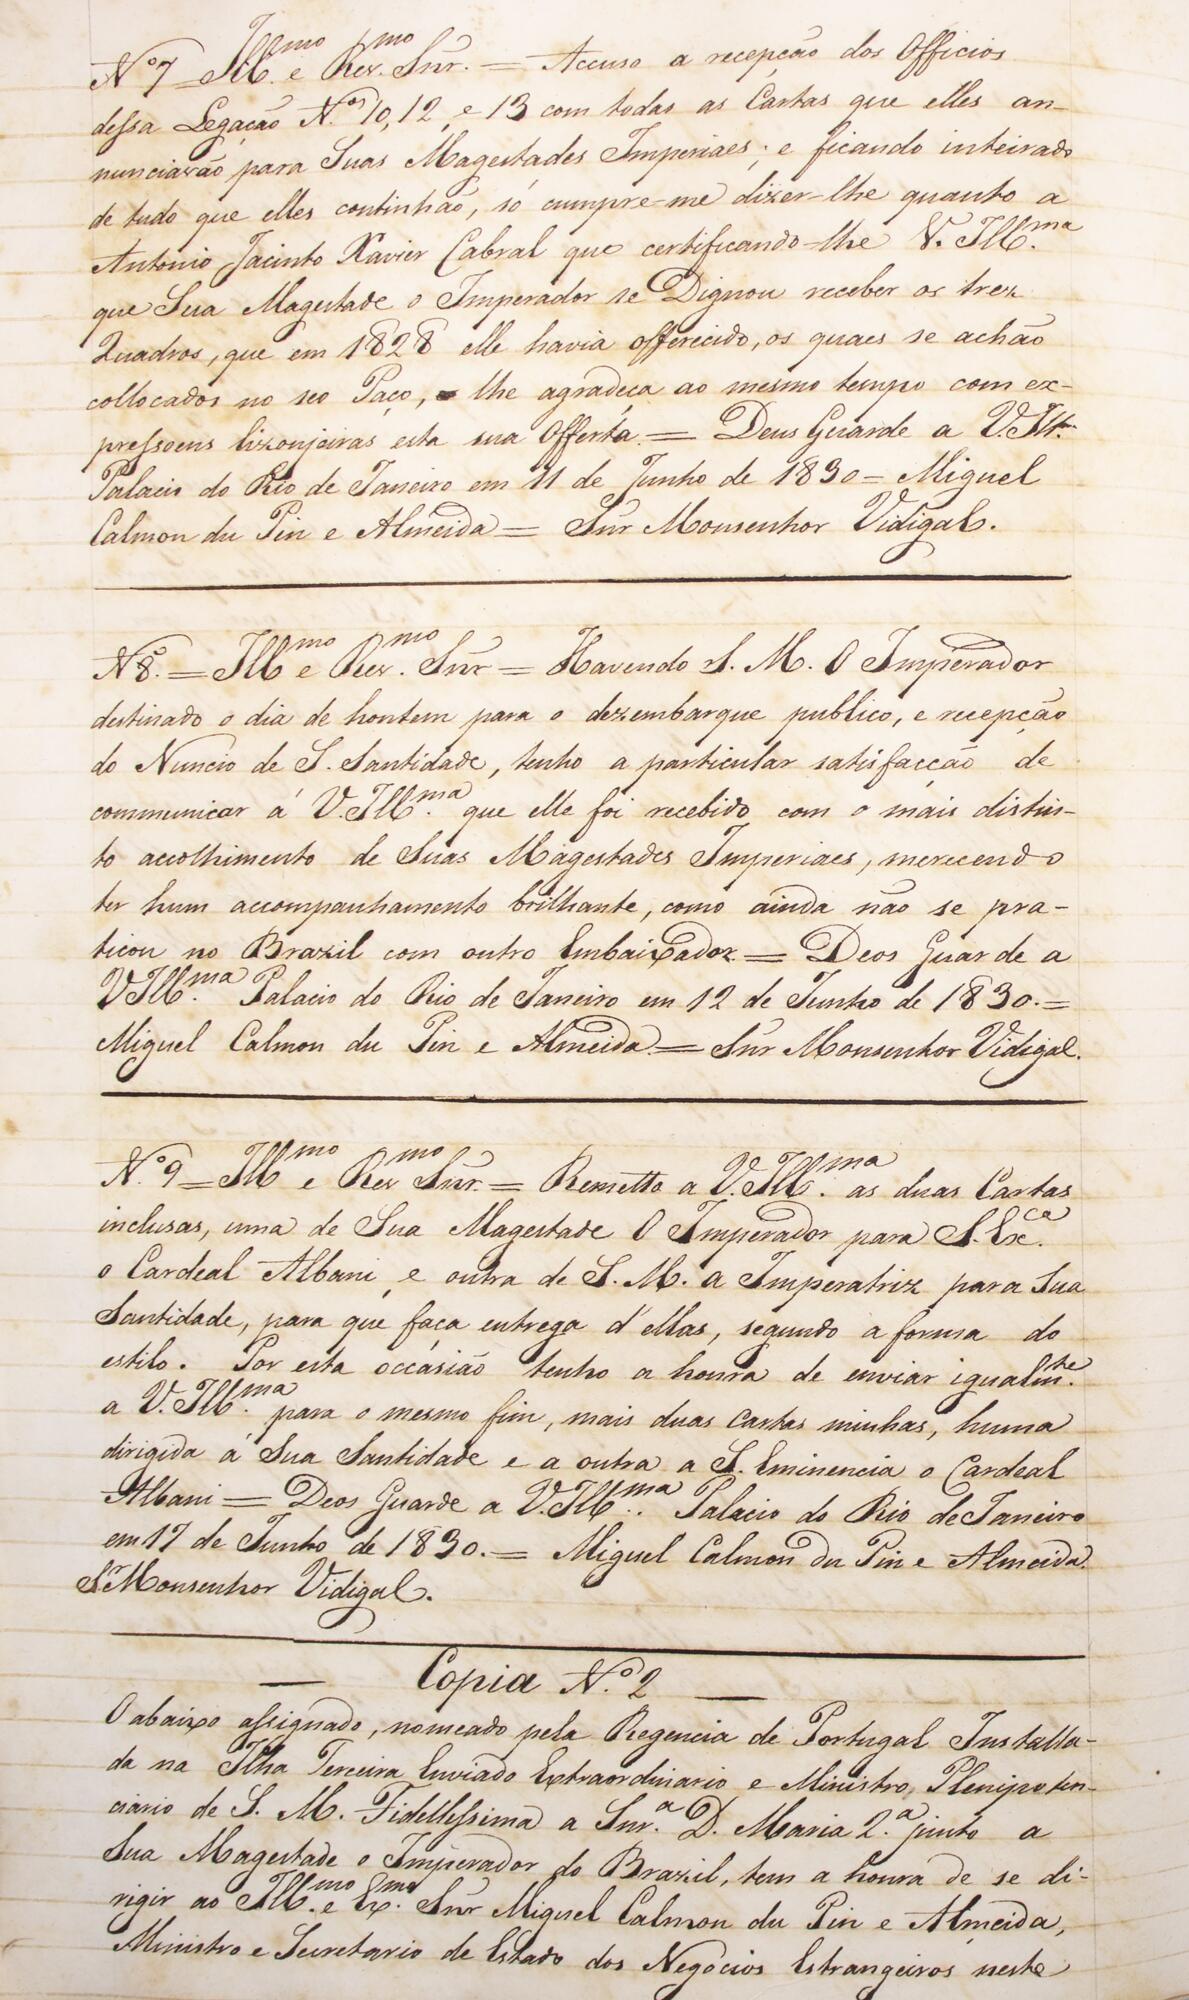 Nº 7 = Illmo e Rev.mo Snr. = Accuso a recepção dos Officios
dessa Legação Nos 10, 12, e 13 com todas as Cartas que elles an-
nunciavão para Suas Magestades Imperiaes; e ficando inteirado
de tudo que elles continhão, só cumpre-me dizer-lhe quanto a
Antonio Jacinto Xavier Cabral que certificando-lhe V. Illma
que Sua Magestade o Imperador se Dignou receber os trez
Quadros, que em 1828 elle havia offerecido, os quaes se achão
collocados no seo Paço, lhe agradeça ao mesmo tempo com ex-
pressoens lizonjeiras esta sua Offerta. = Deus Guarde a V. Illma
Palacio do Rio de Janeiro em 11 de Junho de 1830 = Miguel
Calmon du Pin e Almeida = Snr Monsenhor Vidigal.
Nº 8. = Illmo e Rev.mo Snr = Havendo S. M. O Imperador
destinado o dia de hontem para o dezembarque publico, e recepção
do Nuncio de S. Santidade, tenho a particular satisfacção de
communicar á V. Illma que elle foi recebido com o mais distin-
to acolhimento de Suas Magestades Imperiaes, merecendo
ter hum accompanhamento brilhante, como ainda não se pra-
ticou no Brazil com outro Embaixador. = Deos Guarde a
V Illma Palacio do Rio de Janeiro em 12 de Junho de 1830. =
Miguel Calmon du Pin e Almeida. = Snr Monsenhor Vidigal.
Nº 9 = Illmo e Revmo Snr. = Remetto a V. Illma as duas Cartas
inclusas, uma de Sua Magestade O Imperador para S. Exca
o Cardeal Albani, e outra de S. M. a Imperatriz para Sua
Santidade, para que faça entrega d'ellas, segundo a forma do
estilo. Por esta occasião tenho a honra de enviar igualmte
a V. Illma para o mesmo fim, mais duas cartas minhas, huma
dirigida á Sua Santidade e a outra a S. Eminencia o Cardeal
Albani = Deos Guarde a V. Illma. Palacio do Rio de Janeiro
em 17 de Junho de 1830. = Miguel Calmon du Pin e Almeida.
Sr Monsenhor Vidigal.
— Copia N.º 2 —
O abaixo assignado, nomeado pela Regencia de Portugal Installa-
da na Ilha Terceira Enviado Extraordinario e Ministro Plenipoten-
ciario de S. M. Fidellissima a Snr.a D. Maria 2.a junto a
Sua Magestade o Imperador do Brazil, tem a honra de se di-
rigir ao Illmo e Exmo. Snr Miguel Calmon du Pin e Almeida,
Ministro e Secretario de Estado dos Negocios Estrangeiros neste